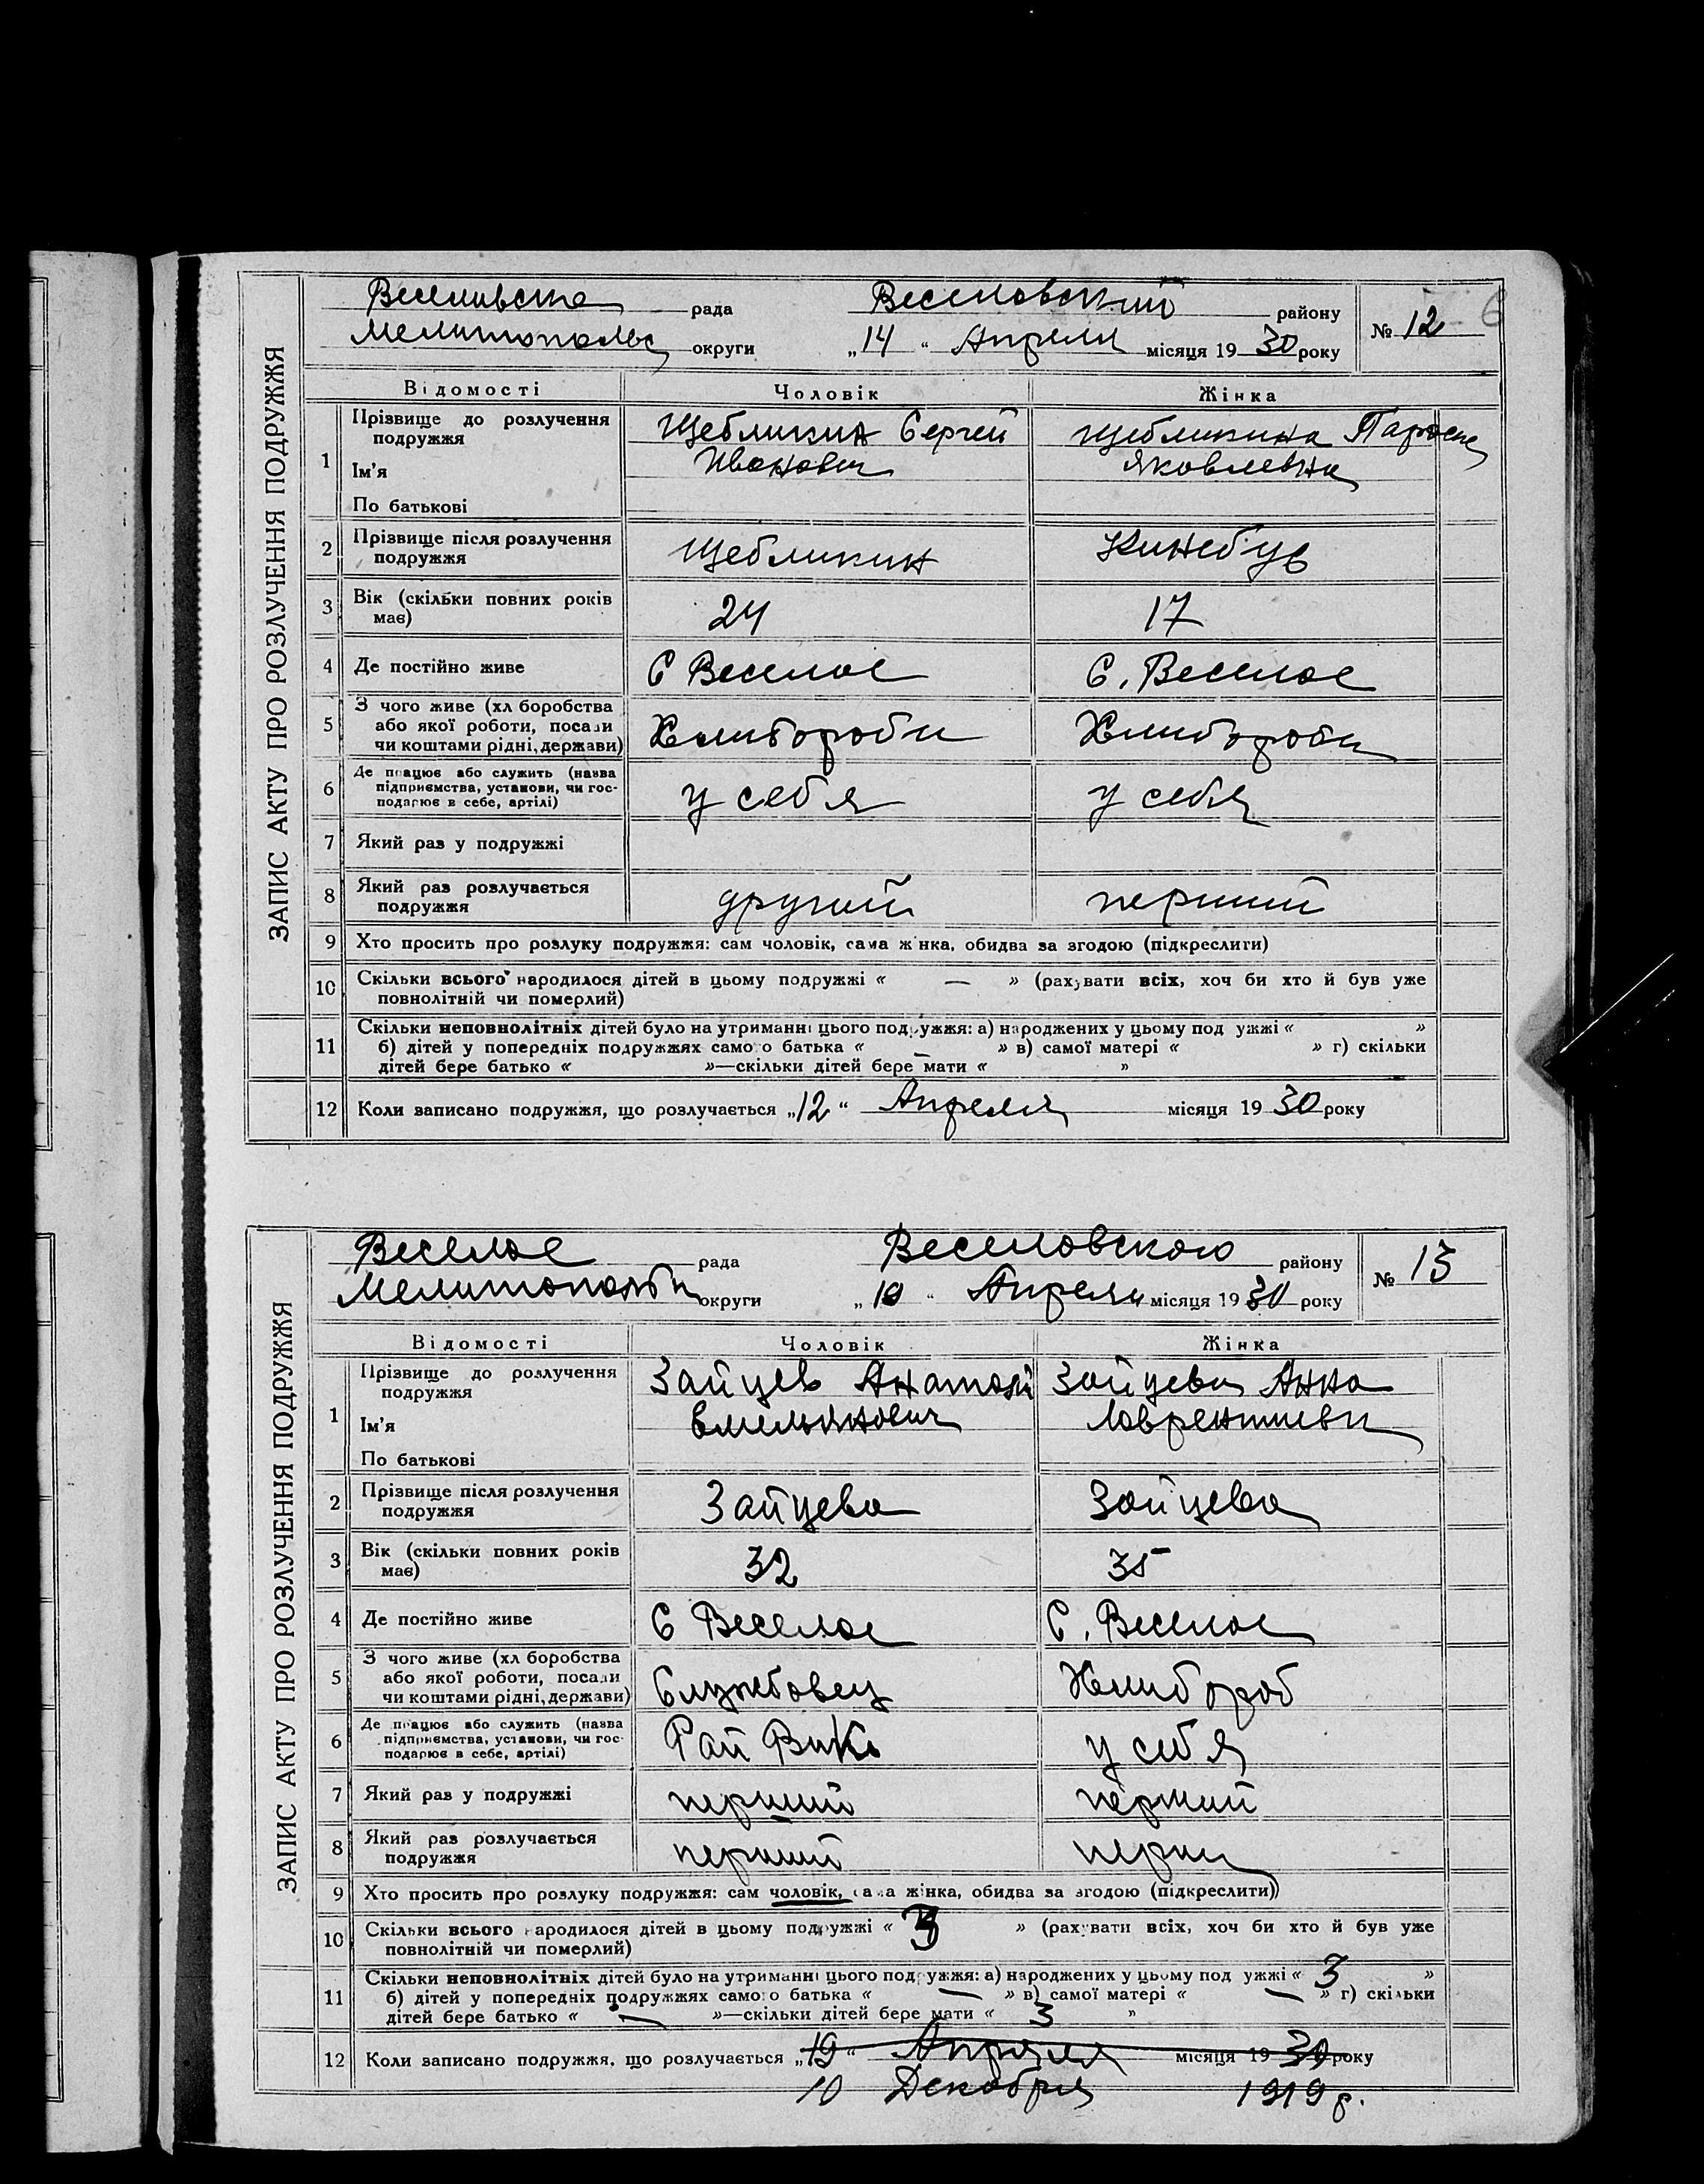 ЗАПИС АКТУ ПРО РОЗЛУЧЕННЯ ПОДРУЖЖЯ
Веселивска рада Веселовский району № 12 6
Мелитопольс округи „14“ Апреля місяця 1930 року
Відомості Чоловік Жінка
1 Прізвище до розлучення подружжя Щебликин Сергей Щебликина Параске
Ім'я Иванович Яковлевна
По батькові
2 Прізвище після розлучення подружжя Щебликин
3 Вік (скільки повних років має) 24 17
4 Де постійно живе С Веселое С. Веселое
5 З чого живе (хл боробства
або якої роботи, посади Хлибороби Хлибороби
чи коштами рідні, держави)
6 Де працює або служить (назва
підприємства, установи, чи гос- у себя у себя
подарює в себе, артілі)
7 Який раз у подружжі
8 Який раз розлучається подружжя другий перший
9 Хто просить про розлуку подружжя: сам чоловік, сама жінка, обидва за згодою (підкреслити)
10 Скільки всього народилося дітей в цьому подружжі « — » (рахувати всіх, хоч би хто й був уже
повнолітній чи померлий)
11 Скільки неповнолітніх дітей було на утриманні цього подружжя: а) народжених у цьому под ужжі « »
б) дітей у попередніх подружжях самого батька « — » в) самої матері « » г) скільки
дітей бере батько « »—скільки дітей бере мати « »
12 Коли записано подружжя, що розлучається „12“ Апреля місяця 1930 року
ЗАПИС АКТУ ПРО РОЗЛУЧЕННЯ ПОДРУЖЖЯ
Веселое рада Веселовского району № 13
округи „19“ Апреля місяця 1930 року
Відомості Чоловік Жінка
1 Прізвище до розлучення подружжя Зайцев Анатолий Зайцева Анна
Ім'я Емельянович Лаврентиевн
По батькові
2 Прізвище після розлучення подружжя Зайцева Зайцева
3 Вік (скільки повних років має) 32 35
4 Де постійно живе С Веселое С. Веселое
5 З чого живе (хл боробства
або якої роботи, посади Службовец Хлибороб
чи коштами рідні, держави)
6 Де працює або служить (назва
підприємства, установи, чи гос- Рай у себя
подарює в себе, артілі)
7 Який раз у подружжі перший перший
8 Який раз розлучається подружжя перший перши
9 Хто просить про розлуку подружжя: сам чоловік, сама жінка, обидва за згодою (підкреслити)
10 Скільки всього народилося дітей в цьому подружжі « 3 » (рахувати всіх, хоч би хто й був уже
повнолітній чи померлий)
11 Скільки неповнолітніх дітей було на утриманні цього подружжя: а) народжених у цьому под ужжі « 3 »
б) дітей у попередніх подружжях самого батька « — » в) самої матері « — » г) скільки
дітей бере батько « — »—скільки дітей бере мати « 3 »
12 Коли записано подружжя, що розлучається „19“ Апреля місяця 1930 року
10 Декабря 1919 р.